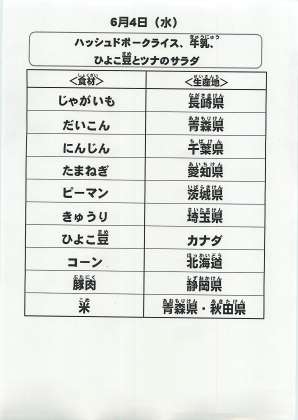 6月4日（水）
ハッシュドポークライス、牛乳、
ひよこ豆とツナのサラダ
＜食材＞ ＜生産地＞
じゃがいも 長崎県
だいこん 青森県
にんじん 千葉県
たまねぎ 愛知県
ピーマン 茨城県
きゅうり 埼玉県
ひよこ豆 カナダ
コーン 北海道
豚肉 静岡県
米 青森県・秋田県